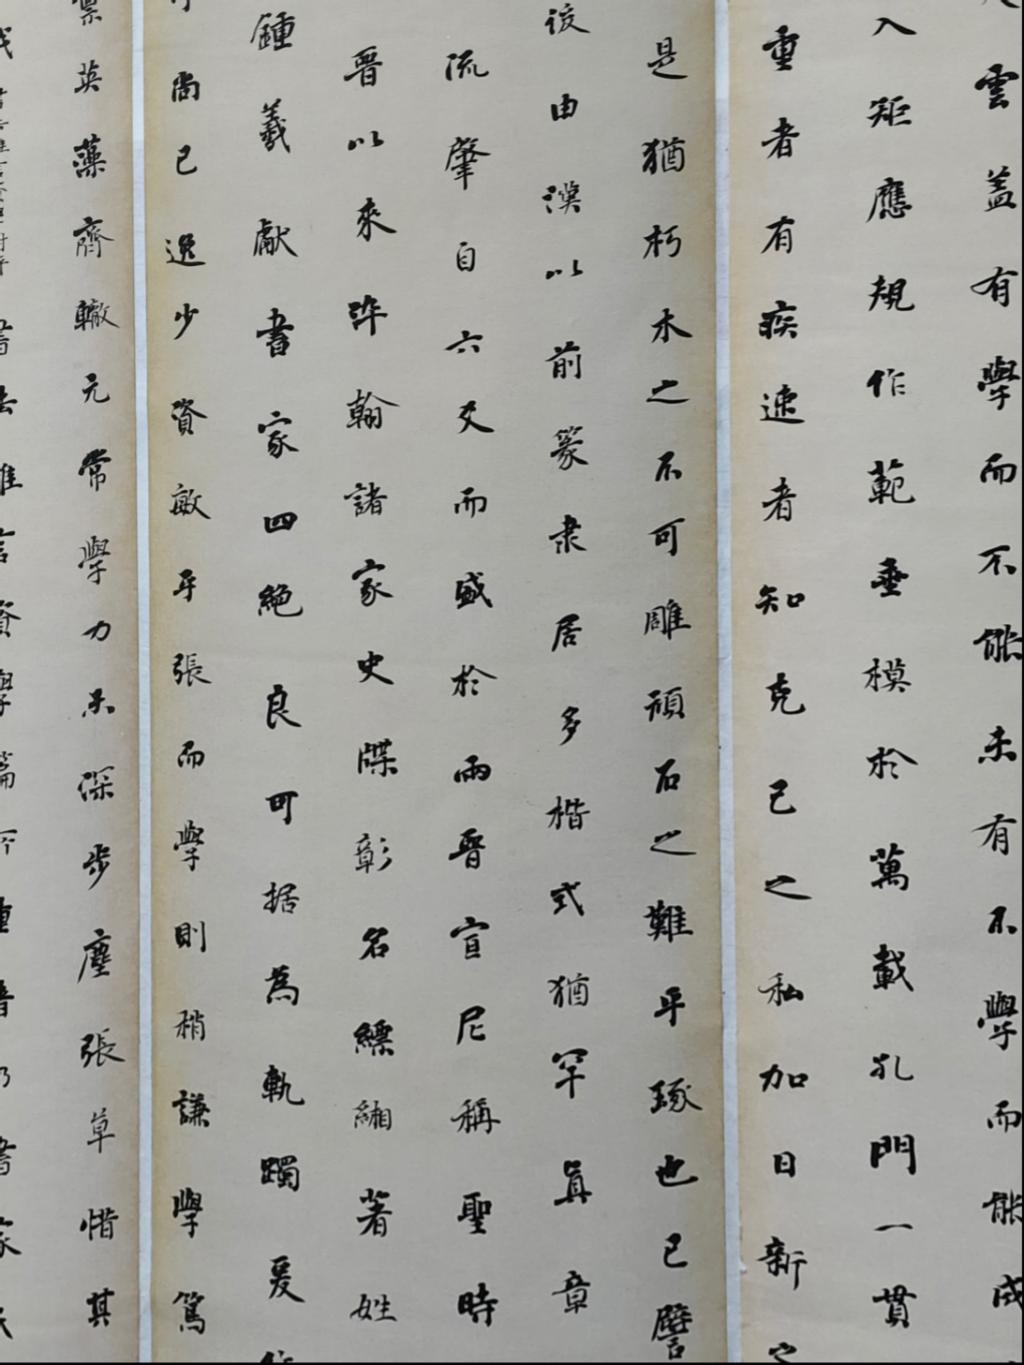 雲盖有學而不能未有不學而能成
入矩應規作範垂模於萬載孔門一貫
重者有疾速者知克己之私加日新
是猶朽木之不可雕頑石之難乎琢也已譬
由漢以前篆隶居多楷式猶罕真章
流肇自六文而盛於兩晉宣尼稱聖時
晉以來眸翰諸家史牒彰名縹緗著姓
鍾羲獻書家四絕良可据為軌躅爰
尚已逸少資敏乎張而學則稍謙學篤
英藻齊轍元常學力未深步塵張草惜其